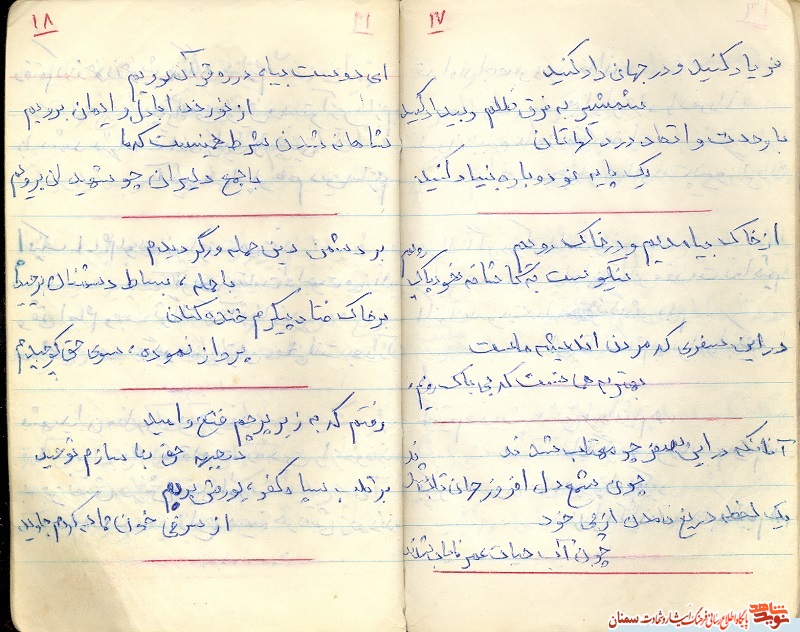 ۱۷
فریاد کنید و در جهان داد کنید
شمشیر به فرق ظلم و بیداد کنید
با وحدت و اتحاد در دلهاتان
یک پایه نو دوباره بنیاد کنید
از خاک بیامدیم و در خاک رویم
نیکوست به کاشانه خود پاک رویم
در این سفری که مردن اندیشه ماست
بهتر که بی باک رویم
آنانکه در این چو مهتاب شدند
چون شمع دل افروز جهان تاب شدند
یک لحظه دریغ نامدن از پی خود
چون آب حیات عمر نایاب شدند
۱۸
ای دوست بیا، در ره قرآن برویم
از خود و ایمان برویم
شاهانه شدن شرط همینست که ما
با جمع دلیران چو شهیدان برویم
بر دشمن دین حمله ور گردیدم
با حمله، بساط دشمنان برچیدم
بر خاک فتاد پیکرم خنده کنان
پرواز نموده، سوی حق کوچیدم
رفتم که به زیر پرچم فتح و امید
در جبهه حق بنا سازم توحید
بر قلب سپاه کفر، یورش بردم
از سرخی خون حماسه کردم جاوید
نوید شاهد
پایگاه اطلاع رسانی فرهنگ ایثار و شهادت سمنان